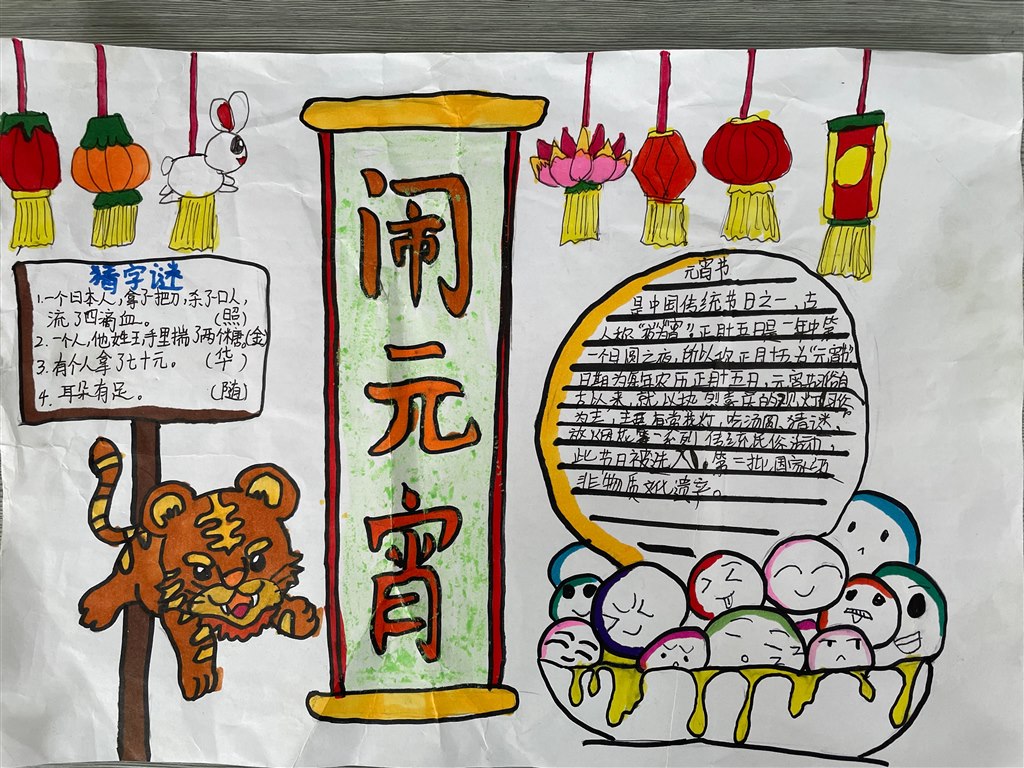 猜字谜
1.一个日本人,拿了把刀,杀了口人,
流了四滴血。 (照)
2.一个人,他姓王,手里揣了两个糖,(金)
3.有个人拿了七十元。 (华)
4.耳朵有足。 (随)
闹
元
宵
元宵节
是中国传统节日之一,古
人称"宵",正月十五日是一年中第
一个月圆之夜,所以称正月十五为"元宵节"
日期为每年农历正月十五日,元宵节
古以来,就以热烈喜庆的观灯习俗
为主,主要有赏花灯,吃汤圆,猜谜,
放烟花等一系列传统民俗活动,
此节日被选入,第二批国家级
非物质文化遗产。